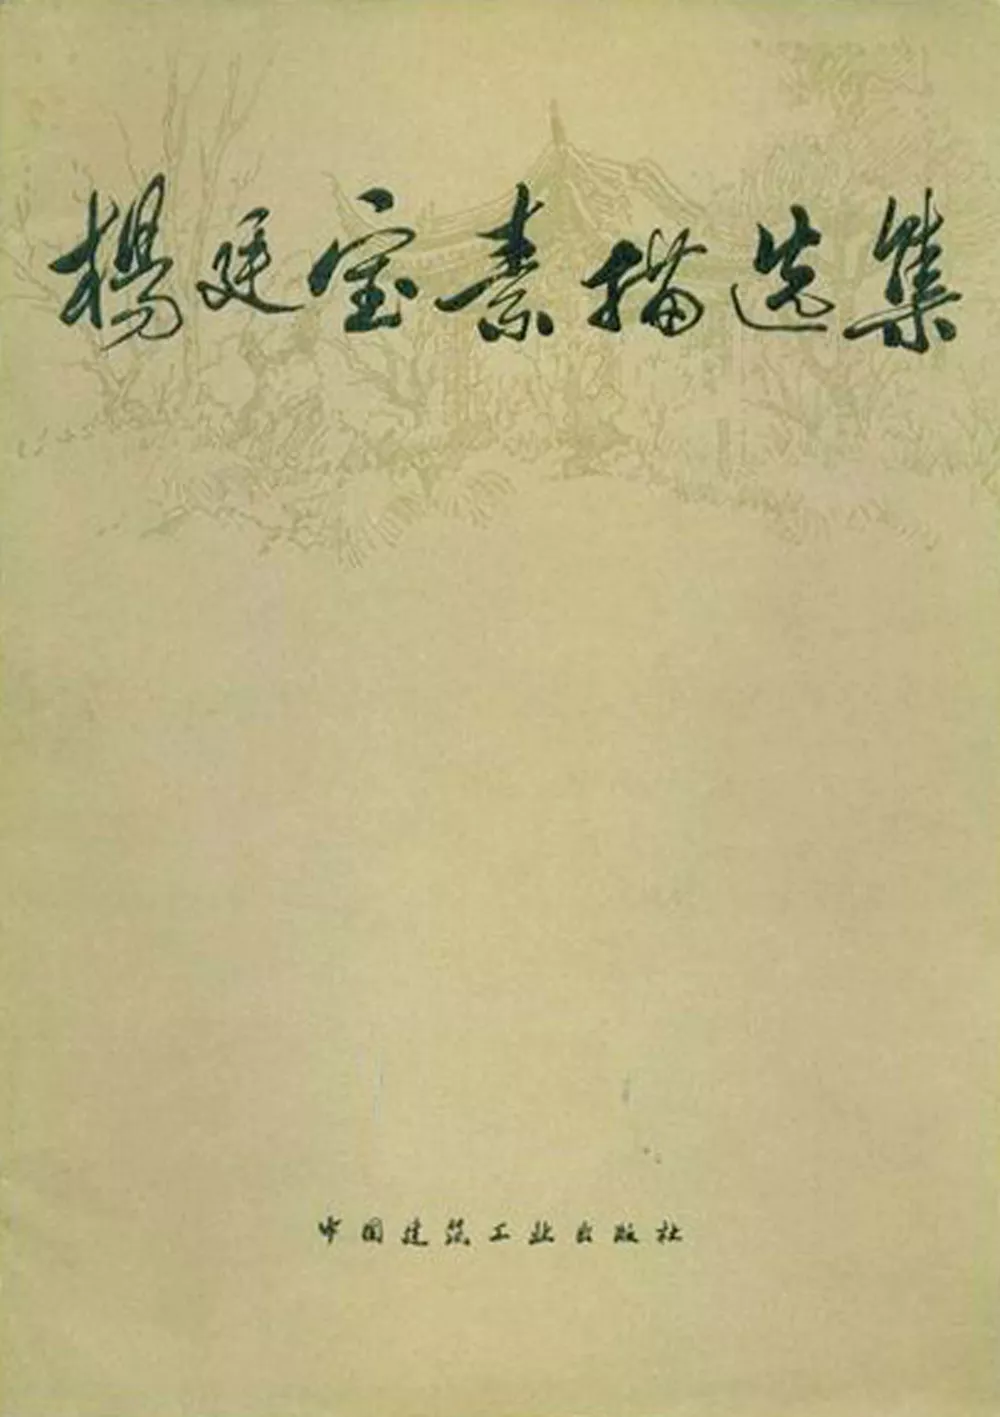 楊廷宝素描选集
中国建筑工业出版社